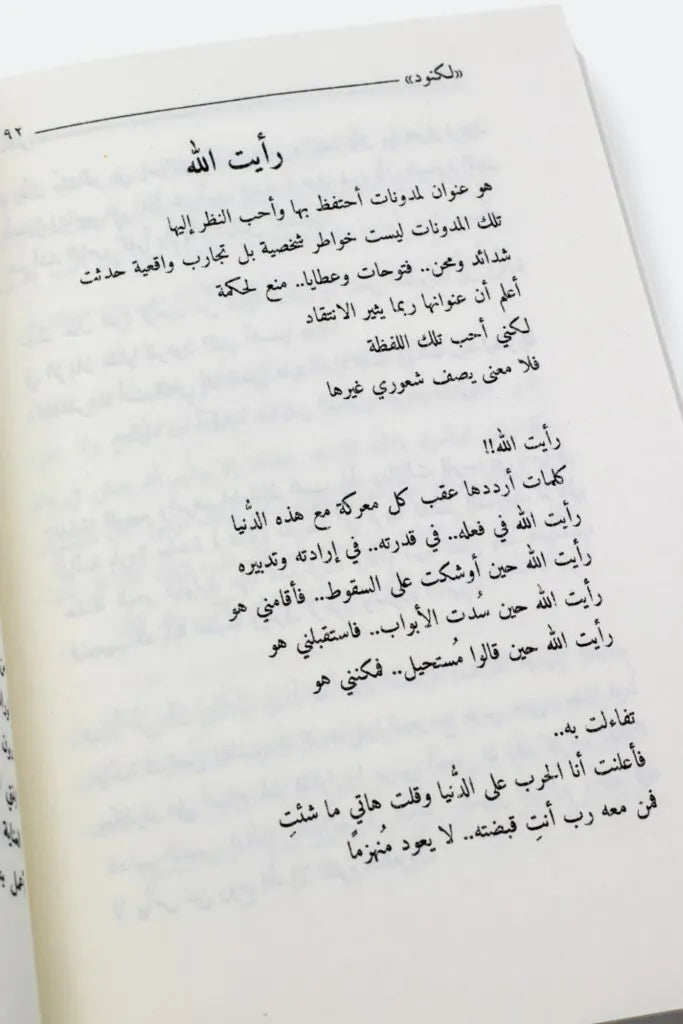 «لكنود»
٩٢
رأيت الله
هو عنوان لمدونات أحتفظ بها وأحب النظر إليها
تلك المدونات ليست خواطر شخصية بل تجارب واقعية حدثت
شدائد ومحن.. فتوحات وعطايا.. منع لحكمة
أعلم أن عنوانها ربما يثير الانتقاد
لكني أحب تلك اللفظة
فلا معنى يصف شعوري غيرها
رأيت الله!!
كلمات أرددها عقب كل معركة مع هذه الدُّنيا
رأيت الله في فعله.. في قدرته.. في إرادته وتدبيره
رأيت الله حين أوشكت على السقوط.. فأقامني هو
رأيت الله حين سُدت الأبواب.. فاستقبلني هو
رأيت الله حين قالوا مُستحيل.. فمكنني هو
تفاءلت به..
فأعلنت أنا الحرب على الدُّنيا وقلت هاتي ما شئتِ
فمن معه رب أنتِ قبضته.. لا يعود مُنهزمًا